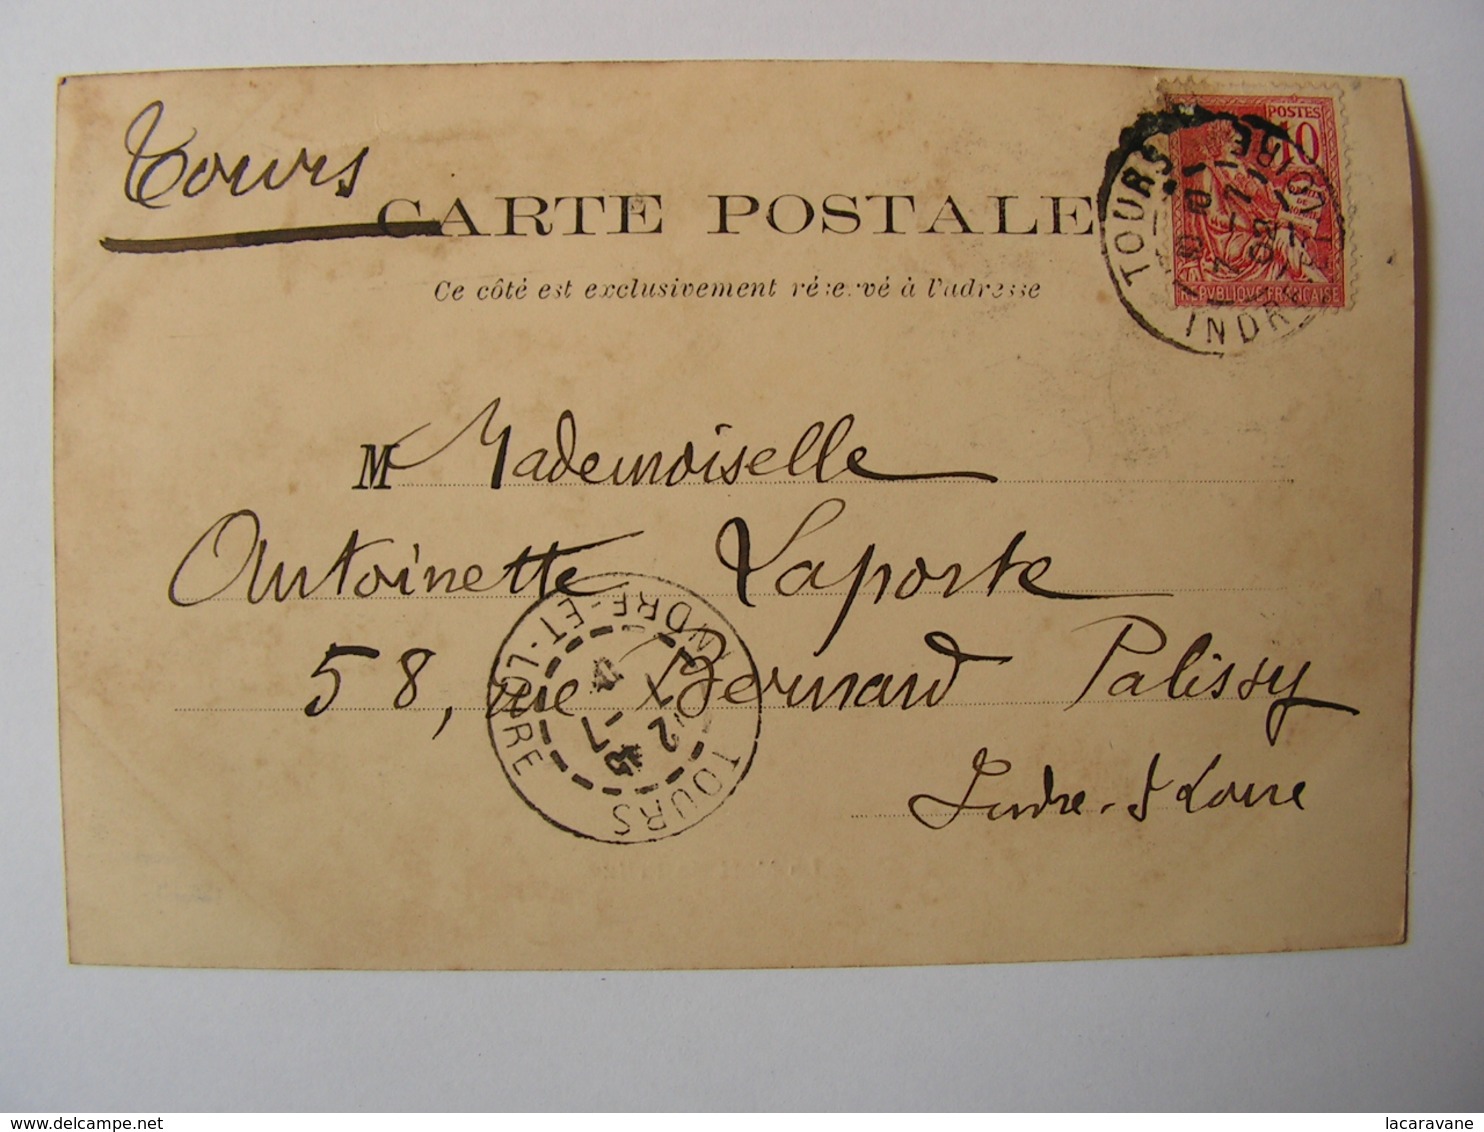 Tours
CARTE POSTALE
Ce côté est exclusivement réservé à l'adresse
POSTES
10
REPVBLIQVE FRANÇAISE
TOURS
INDRE-ET-LOIRE
M Mademoiselle
Antoinette Laporte
58, rue Bernard Palissy
Indre-&-Loire
TOURS
INDRE-ET-LOIRE
www.delcampe.net
lacaravane